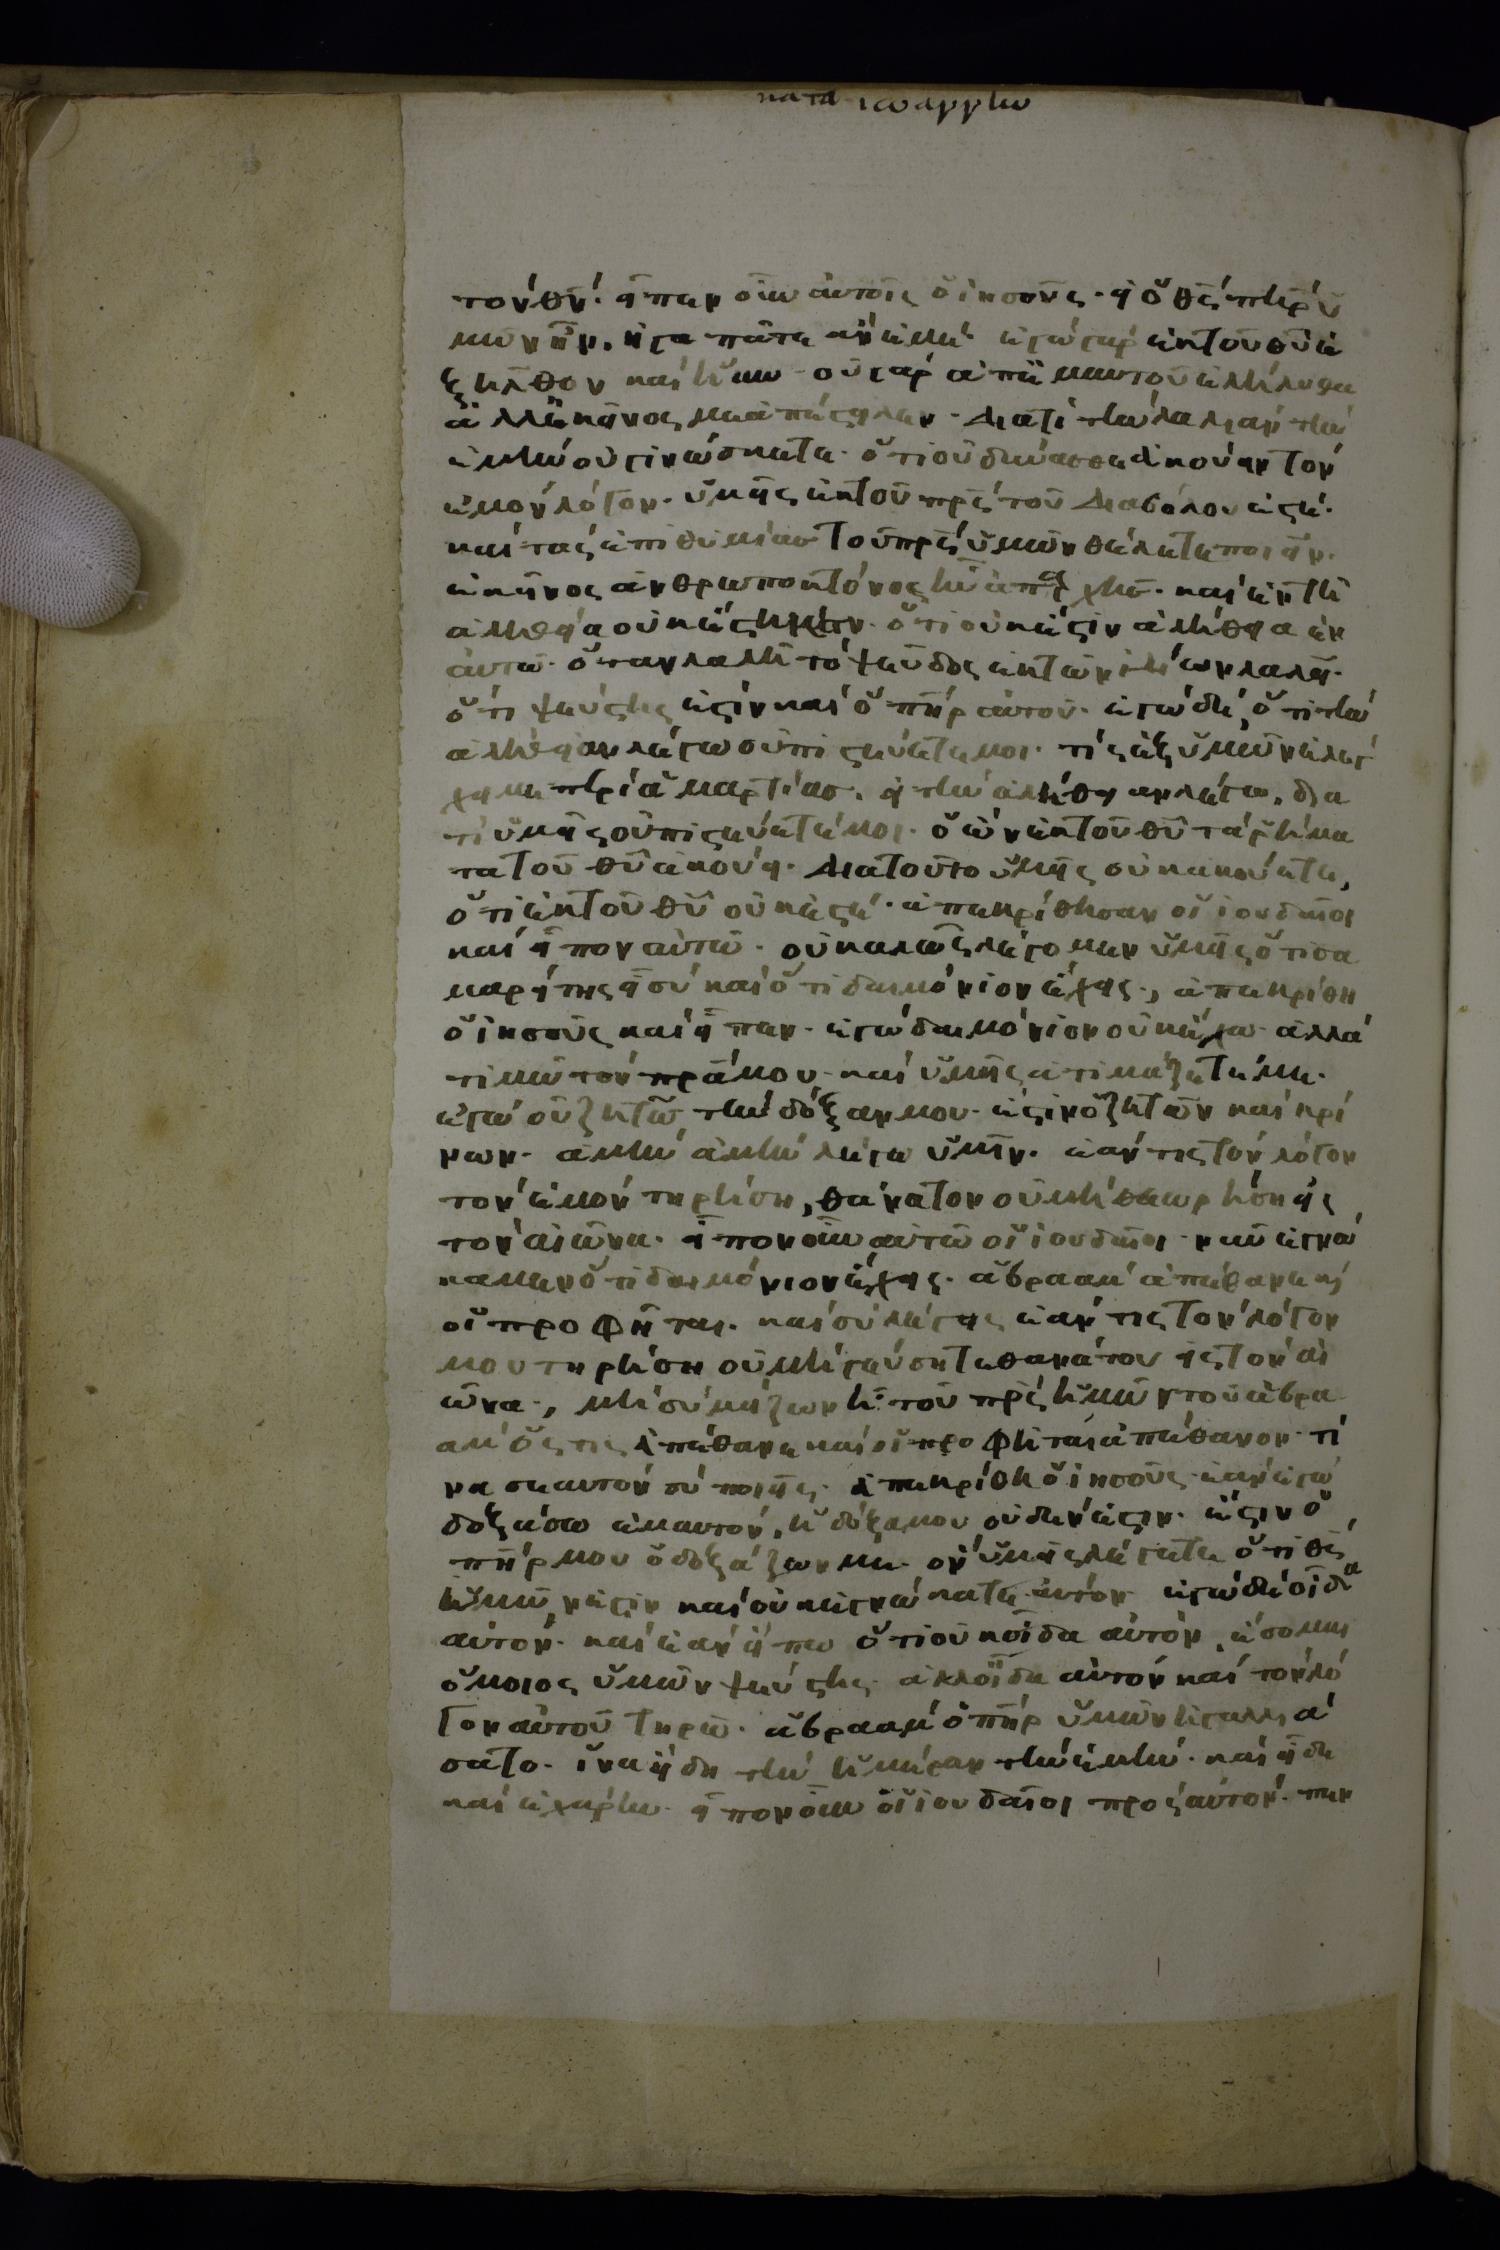 κατα ιωαννην
τον θν· εἶπεν οὖν αὐτοῖς ὁ ἰησοῦς· εἰ ὁ θς πηρ ὑ
μῶν ἦν. ἠγαπᾶτε ἂν ἐμέ· ἐγὼ γὰρ ἐκ τοῦ θυ ἐ
ξῆλθον καὶ ἥκω· οὐ γὰρ ἀπ' ἐμαυτοῦ ἐλήλυθα
ἀλλ' ἐκεῖνος με ἀπέστειλεν· διατί τὴν λαλιὰν τὴν
ἐμὴν οὐ γινώσκετε· ὅτι οὐ δύνασθε ἀκούειν τὸν
ἐμὸν λόγον· ὑμεῖς ἐκ τοῦ πρς τοῦ διαβόλου ἐστέ·
καὶ τὰς ἐπιθυμίας τοῦ πρς ὑμῶν θέλετε ποιεῖν·
ἐκεῖνος ἀνθρωποκτόνος ἦν ἀπ' αρχῆς· καὶ ἐν τῆ
ἀληθεία οὐκ ἔστηκεν· ὅτι οὐκ ἔστιν ἀλήθεια ἐν
αὐτῶ· ὅταν λαλῆ τὸ ψεῦδος ἐκ τῶν ἰδίων λαλεῖ·
ὅτι ψεύστης ἐστὶν καὶ ὁ πηρ αὐτοῦ· ἐγὼ δὲ, ὅτι τὴν
ἀλήθειαν λέγω οὐ πιστεύετέ μοι· τίς ἐξ ὑμῶν ἐλέγ
χει με περὶ ἁμαρτίας· εἰ τὴν ἀλήθειαν λέγω, δια
τί ὑμεῖς οὐ πιστεύετέ μοι· ὁ ὢν ἐκ τοῦ θυ τὰ ῥήμα
τα τοῦ θυ ἀκούει· διατοῦτο ὑμεῖς οὐκ ἀκούετε,
ὅτι ἐκ τοῦ θυ οὐκ ἐστέ· ἀπεκρίθησαν οἱ ἰουδαῖοι
καὶ εἶπον αὐτῶ· οὐ καλῶς λέγομεν ὑμεῖς ὅτι σα
μαρείτης εἶ σὺ καὶ ὅτι δαιμόνιον ἔχεις·, ἀπεκρίθη
ὁ ἰησοῦς καὶ εἶπεν· ἐγὼ δαιμόνιον οὐκ ἔχω· ἀλλὰ
τιμῶ τὸν πρα μου· καὶ ὑμεῖς ἀτιμάζετέ με·
ἐγὼ οὐ ζητῶ τὴν δόξαν μου· ἔστιν ὁ ζητῶν καὶ κρί
νων· ἀμὴν ἀμὴν λέγω ὑμῖν· ἐάν τις τὸν λόγον
τὸν ἐμὸν τηρήση, θάνατον οὐ μὴ θεωρήση εἰς
τὸν αἰῶνα· εἶπον οὖν αὐτῶ οἱ ἰουδαῖοι· νῦν ἐγνώ
καμεν ὅτι δαιμόνιον ἔχεις· ἀβραὰμ ἀπέθανε κὶ
οἱ προφῆται· καὶ σὺ λέγεις ἐάν τις τὸν λόγον
μου τηρήση οὐ μὴ γεύσητε θανάτου εἰς τὸν αἰ
ῶνα·, μὴ σὺ μείζων εἶ τοῦ πρς ἡμῶν τοῦ ἀβρα
ὰμ ὅστις ἀπέθανε καὶ οἱ προφῆται ἀπέθανον· τί
να σεαυτὸν σὺ ποιεῖς· ἀπεκρίθη ὁ ἰησοῦς· ἐὰν ἐγὼ
δοξάσω ἐμαυτόν, ἡ δόξα μου οὐδέν ἐστιν· ἔστιν ὁ
πηρ μου ὁ δοξάζων με· ὃν ὑμεῖς λέγετε ὅτι θς
ἡμῶν ἐστιν καὶ οὐκ ἐγνώκατε αὐτόν· ἐγὼ δὲ οἶδα
αὐτόν· καὶ ἐὰν εἴπω ὅτι οὐκ οἶδα αὐτόν, ἔσομαι
ὅμοιος ὑμῶν ψεύστης· ἀλλ' οἶδα αὐτὸν καὶ τὸν λό
γον αὐτοῦ τηρῶ· ἀβραὰμ ὁ πηρ ὑμῶν ἠγαλλιά
σατο· ἵνα εἴδη τὴν ἡμέραν τὴν ἐμήν· καὶ εἶδε
καὶ ἐχάρη· εἶπον οὖν οἱ ἰουδαῖοι προς αὐτόν· πεν